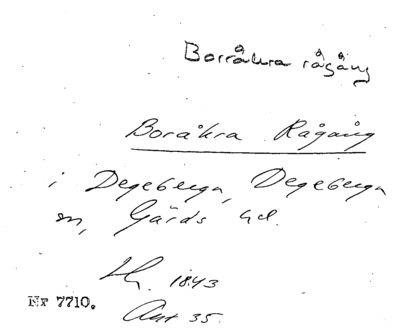 Borråkra rågång
Boråkra Rågång
i Degeberga, Degeberga
sn, Gärds hd.
1843
Nr 7710.
Avt 35.